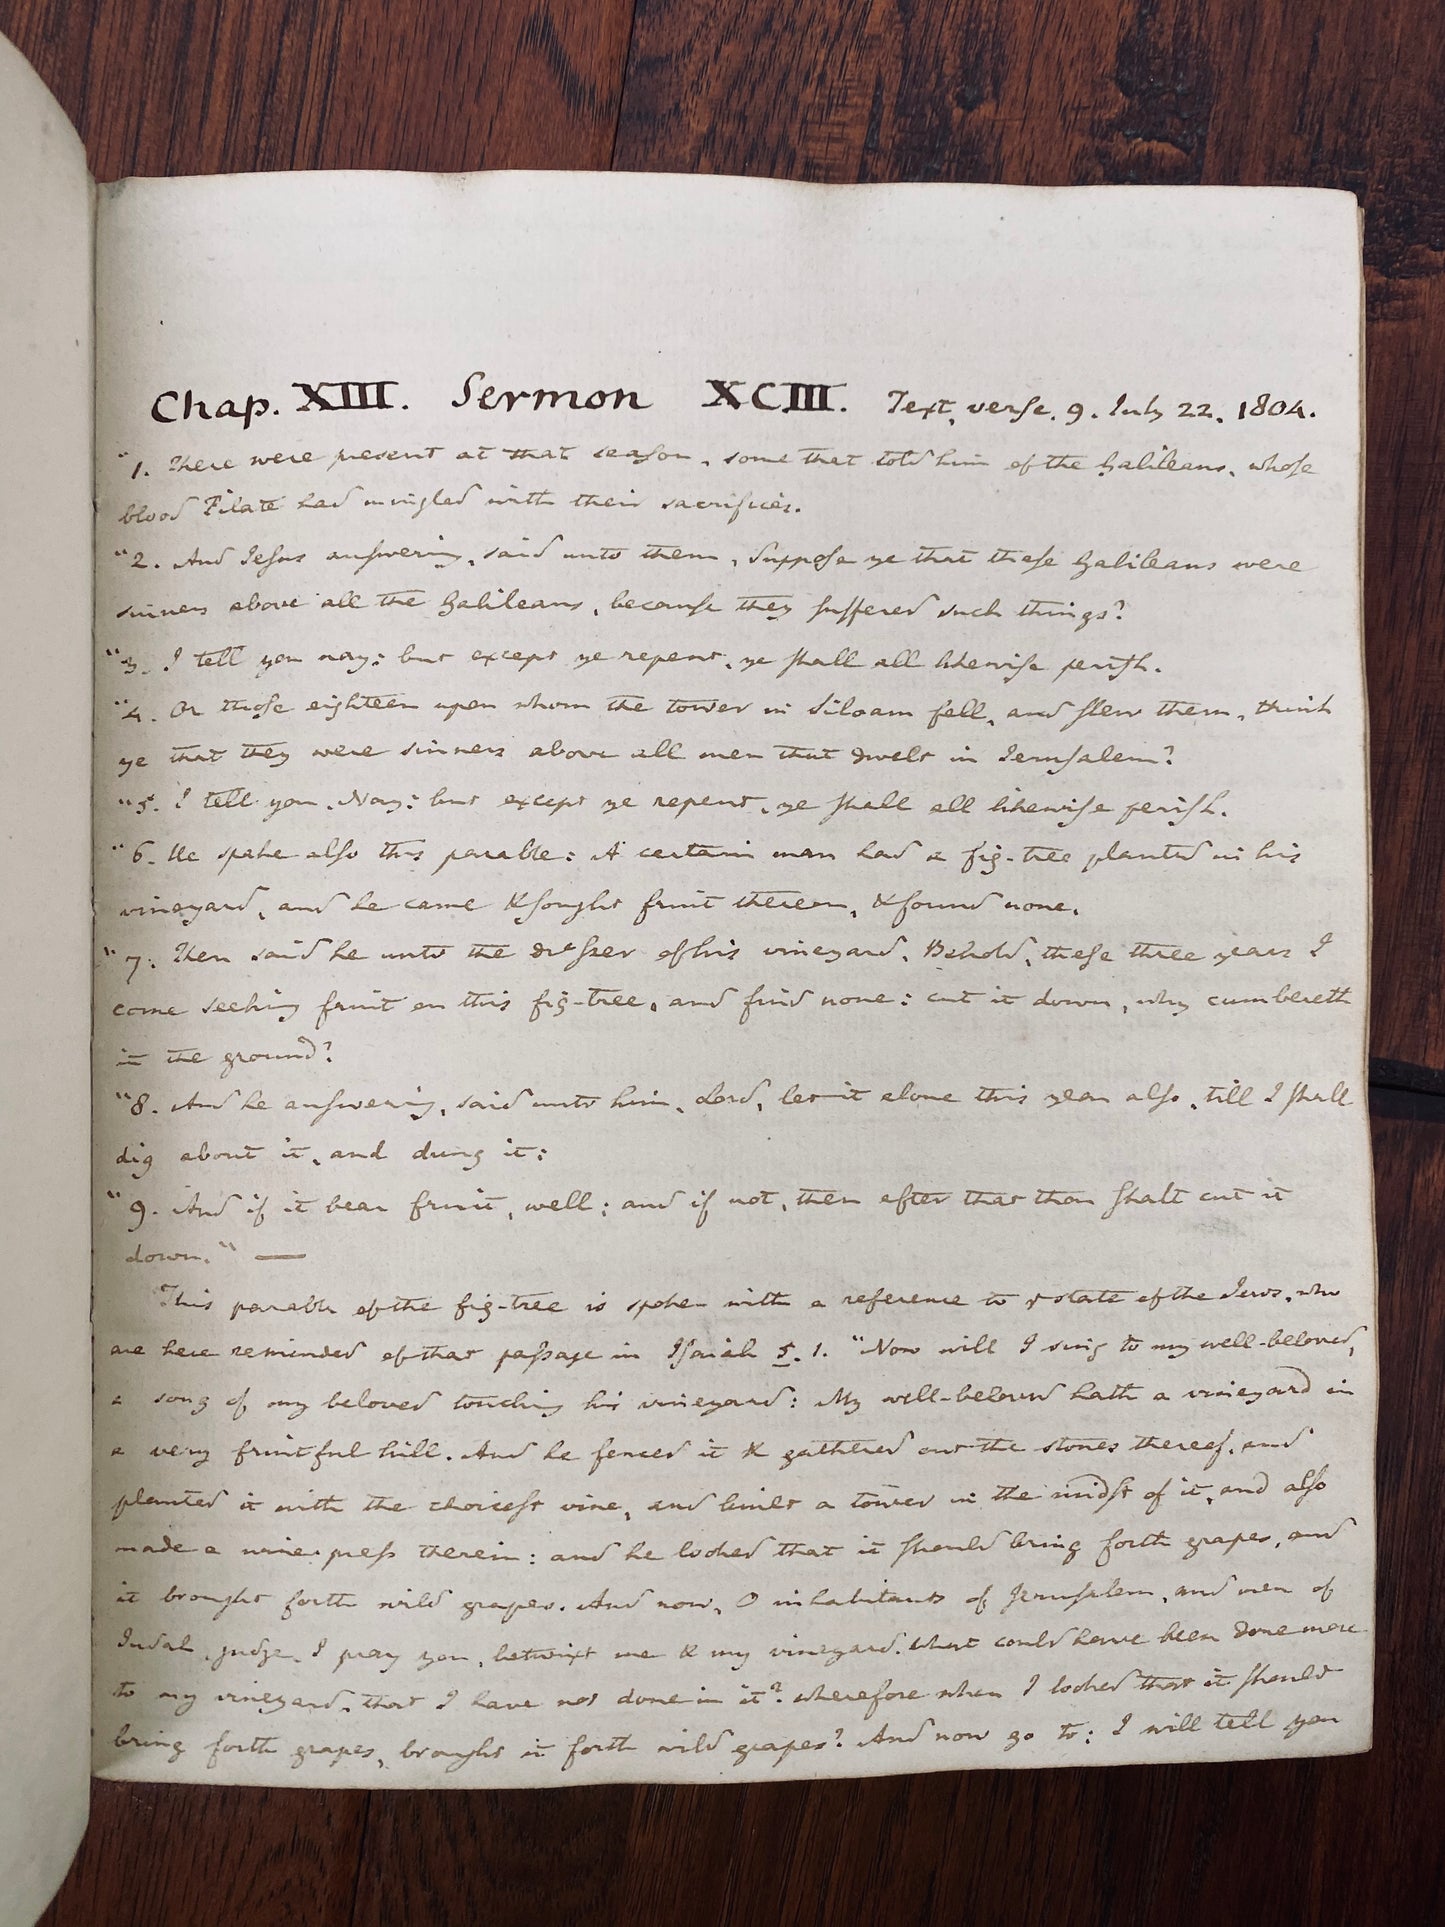 Chap. XIII. Sermon XCIII. Text, verse. 9. July 22. 1804.
"1. There were present at that season, some that told him of the Galileans, whose
blood Pilate had mingled with their sacrifices.
"2. And Jesus answering, said unto them, Suppose ye that these Galileans were
sinners above all the Galileans, because they suffered such things?
"3. I tell you nay: but except ye repent, ye shall all likewise perish.
"4. Or those eighteen upon whom the tower in Siloam fell, and slew them, think
ye that they were sinners above all men that dwelt in Jerusalem?
"5. I tell you, Nay: but except ye repent, ye shall all likewise perish.
"6. He spake also this parable: A certain man had a fig-tree planted in his
vineyard, and he came & sought fruit thereon, & found none.
"7. Then said he unto the dresser of his vineyard, Behold, these three years I
come seeking fruit on this fig-tree, and find none: cut it down, why cumbereth
it the ground?
"8. And he answering, said unto him, Lord, let it alone this year also, till I shall
dig about it, and dung it:
"9. And if it bear fruit, well: and if not, then after that thou shalt cut it
down." —
This parable of the fig-tree is spoken with a reference to ye state of the Jews, who
are here reminded of that passage in Isaiah 5. 1. "Now will I sing to my well-beloved,
a song of my beloved touching his vineyard: My well-beloved hath a vineyard in
a very fruitful hill. And he fenced it & gathered out the stones thereof, and
planted it with the choicest vine, and built a tower in the midst of it, and also
made a wine-press therein: and he looked that it should bring forth grapes, and
it brought forth wild grapes. And now, O inhabitants of Jerusalem, and men of
Judah, judge, I pray you, betwixt me & my vineyard. What could have been done more
to my vineyard, that I have not done in it? Wherefore when I looked that it should
bring forth grapes, brought it forth wild grapes? And now go to: I will tell you